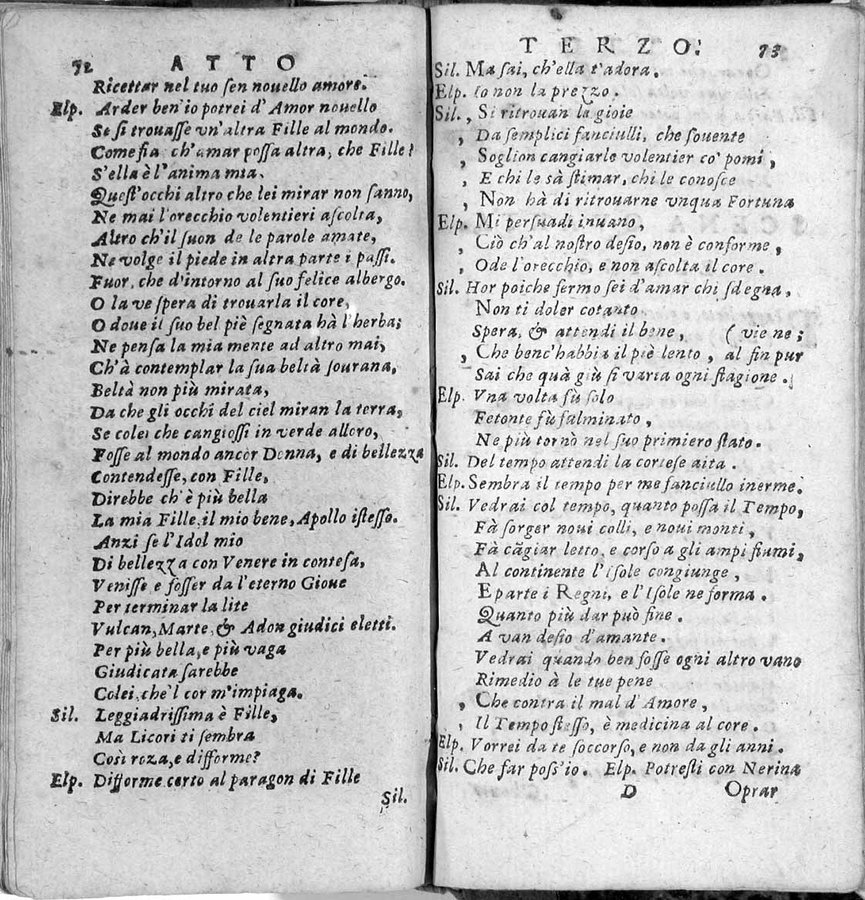 72 ATTO
Ricettar nel tuo sen nouello amore.
Elp. Arder ben'io potrei d'Amor nouello
Se si trouasse vn'altra Fille al mondo.
Come fia ch'amar possa altra, che Fille?
S'ella è l'anima mia.
Quest'occhi altro che lei mirar non sanno,
Ne mai l'orecchio volentieri ascolta,
Altro ch'il suon de le parole amate,
Ne volge il piede in altra parte i passi.
Fuor, che d'intorno al suo felice albergo.
O la ve spera di trouarla il core,
O doue il suo bel piè segnata hà l'herba;
Ne pensa la mia mente ad altro mai,
Ch'à contemplar la sua beltà sourana,
Beltà non più mirata,
Da che gli occhi del ciel miran la terra,
Se colei che cangiossi in verde alloro,
Fosse al mondo ancor Donna, e di bellezza
Contendesse, con Fille,
Direbbe ch'è più bella
La mia Fille, il mio bene, Apollo istesso.
Anzi se l'Idol mio
Di bellezza con Venere in contesa,
Venisse e fosser da l'eterno Gioue
Per terminar la lite
Vulcan, Marte, & Adon giudici eletti.
Per più bella, e più vaga
Giudicata sarebbe
Colei, che'l cor m'impiaga.
Sil. Leggiadrissima è Fille,
Ma Licori ti sembra
Così roza, e difforme?
Elp. Difforme certo al paragon di Fille
Sil.
TERZO. 73
Sil. Ma sai, ch'ella t'adora.
Elp. Io non la prezzo.
Sil. , Si ritrouan la gioie
, Da semplici fanciulli, che souente
, Soglion cangiarle volentier co' pomi,
, E chi le sà stimar, chi le conosce
, Non hà di ritrouarne vnqua Fortuna
Elp. Mi persuadi inuano,
, Ciò ch'al nostro desio, non è conforme,
, Ode l'orecchio, e non ascolta il core.
Sil. Hor poiche fermo sei d'amar chi sdegna,
Non ti doler cotanto
Spera, & attendi il bene, ( vie ne;
, Che benc'habbia il piè lento, al fin pur
Sai che quà giù si varia ogni stagione.
Elp. Vna volta sù solo
Fetonte fù fulminato,
Ne più tornò nel suo primiero stato.
Sil. Del tempo attendi la cortese aita.
Elp. Sembra il tempo per me fanciullo inerme.
Sil. Vedrai col tempo, quanto possa il Tempo,
Fà sorger noui colli, e noui monti,
Fà cãgiar letto, e corso a gli ampi fiumi,
Al continente l'Isole congiunge,
E parte i Regni, e l'Isole ne forma.
Quanto più dar può fine.
A van desio d'amante.
Vedrai quando ben fosse ogni altro vano
Rimedio à le tue pene
, Che contra il mal d'Amore,
, Il Tempo stesso, è medicina al core.
Elp. Vorrei da te soccorso, e non da gli anni.
Sil. Che far poss'io. Elp. Potresti con Nerina
D Oprar